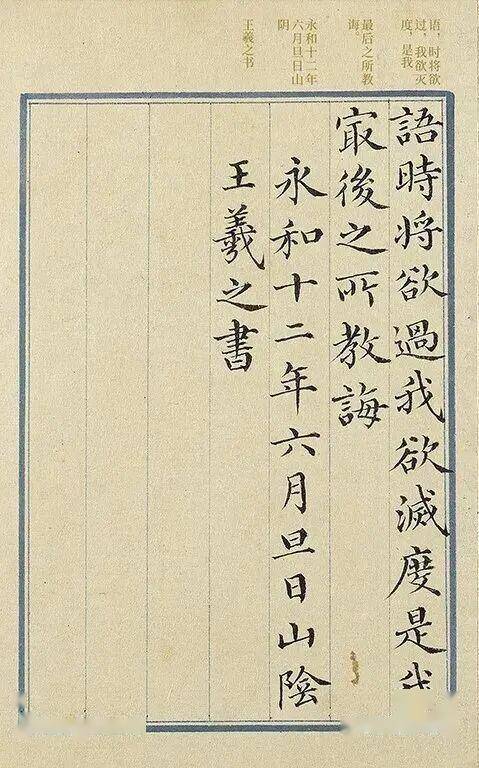 语，时将欲
过，我欲灭
度，是我
最后之所教
诲。
永和十二年
六月旦日山
阴
王羲之书
語時将欲過我欲滅度是我
㝡後之所教誨
永和十二年六月旦日山陰
王羲之書